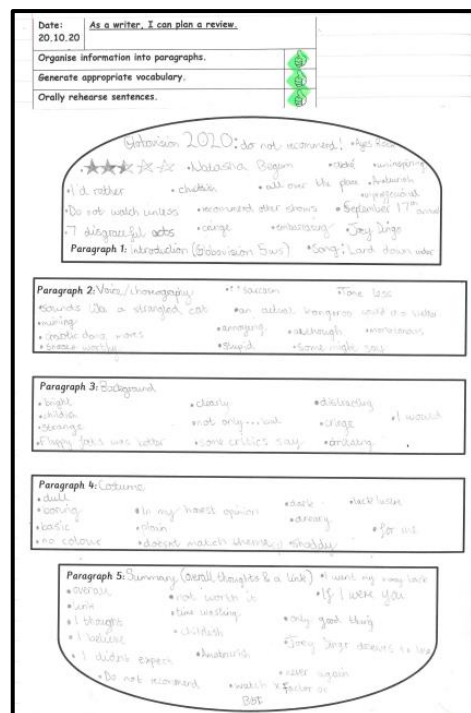 Date: 20.10.20
As a writer, I can plan a review.
Organise information into paragraphs.
Generate appropriate vocabulary.
Orally rehearse sentences.
Globovision 2020: do not recommend! • Ayes Rock
• Natasha Begum • cliché • uninspiring
• I'd rather • childish • all over the place • Amateurish
• Do not watch unless • recommend other shows • September 17th
• 7 disgraceful acts • cringe • embarrassing • Joey Dingo
Paragraph 1: Introduction (Globovision 5 ws) • Song: Land down under
Paragraph 2: Voice/choreography • sarcasm Tone less
• Sounds like a strangled cat • an actual kangaroo would do better
• miming
• chaotic dance moves • annoying • although • monotonous
• Snooze worthy • stupid • some might say
Paragraph 3: Background
• bright • clearly • distracting
• childish • not only...but • cringe • I would
• strange
• some critics say
Paragraph 4: Costume
• dull
• boring • In my honest opinion • dark • lack lustre
• basic • plain • dreary • for me
• no colour • doesn't match theme • shoddy
Paragraph 5: Summary (overall thoughts & a link) • I want my money back
• overall • not worth it • If I were you
• link • time wasting
• I thought • childish • only good thing
• I believe
• I didn't expect • Amateurish • never again
• Do not recommend • watch X Factor or
BGT